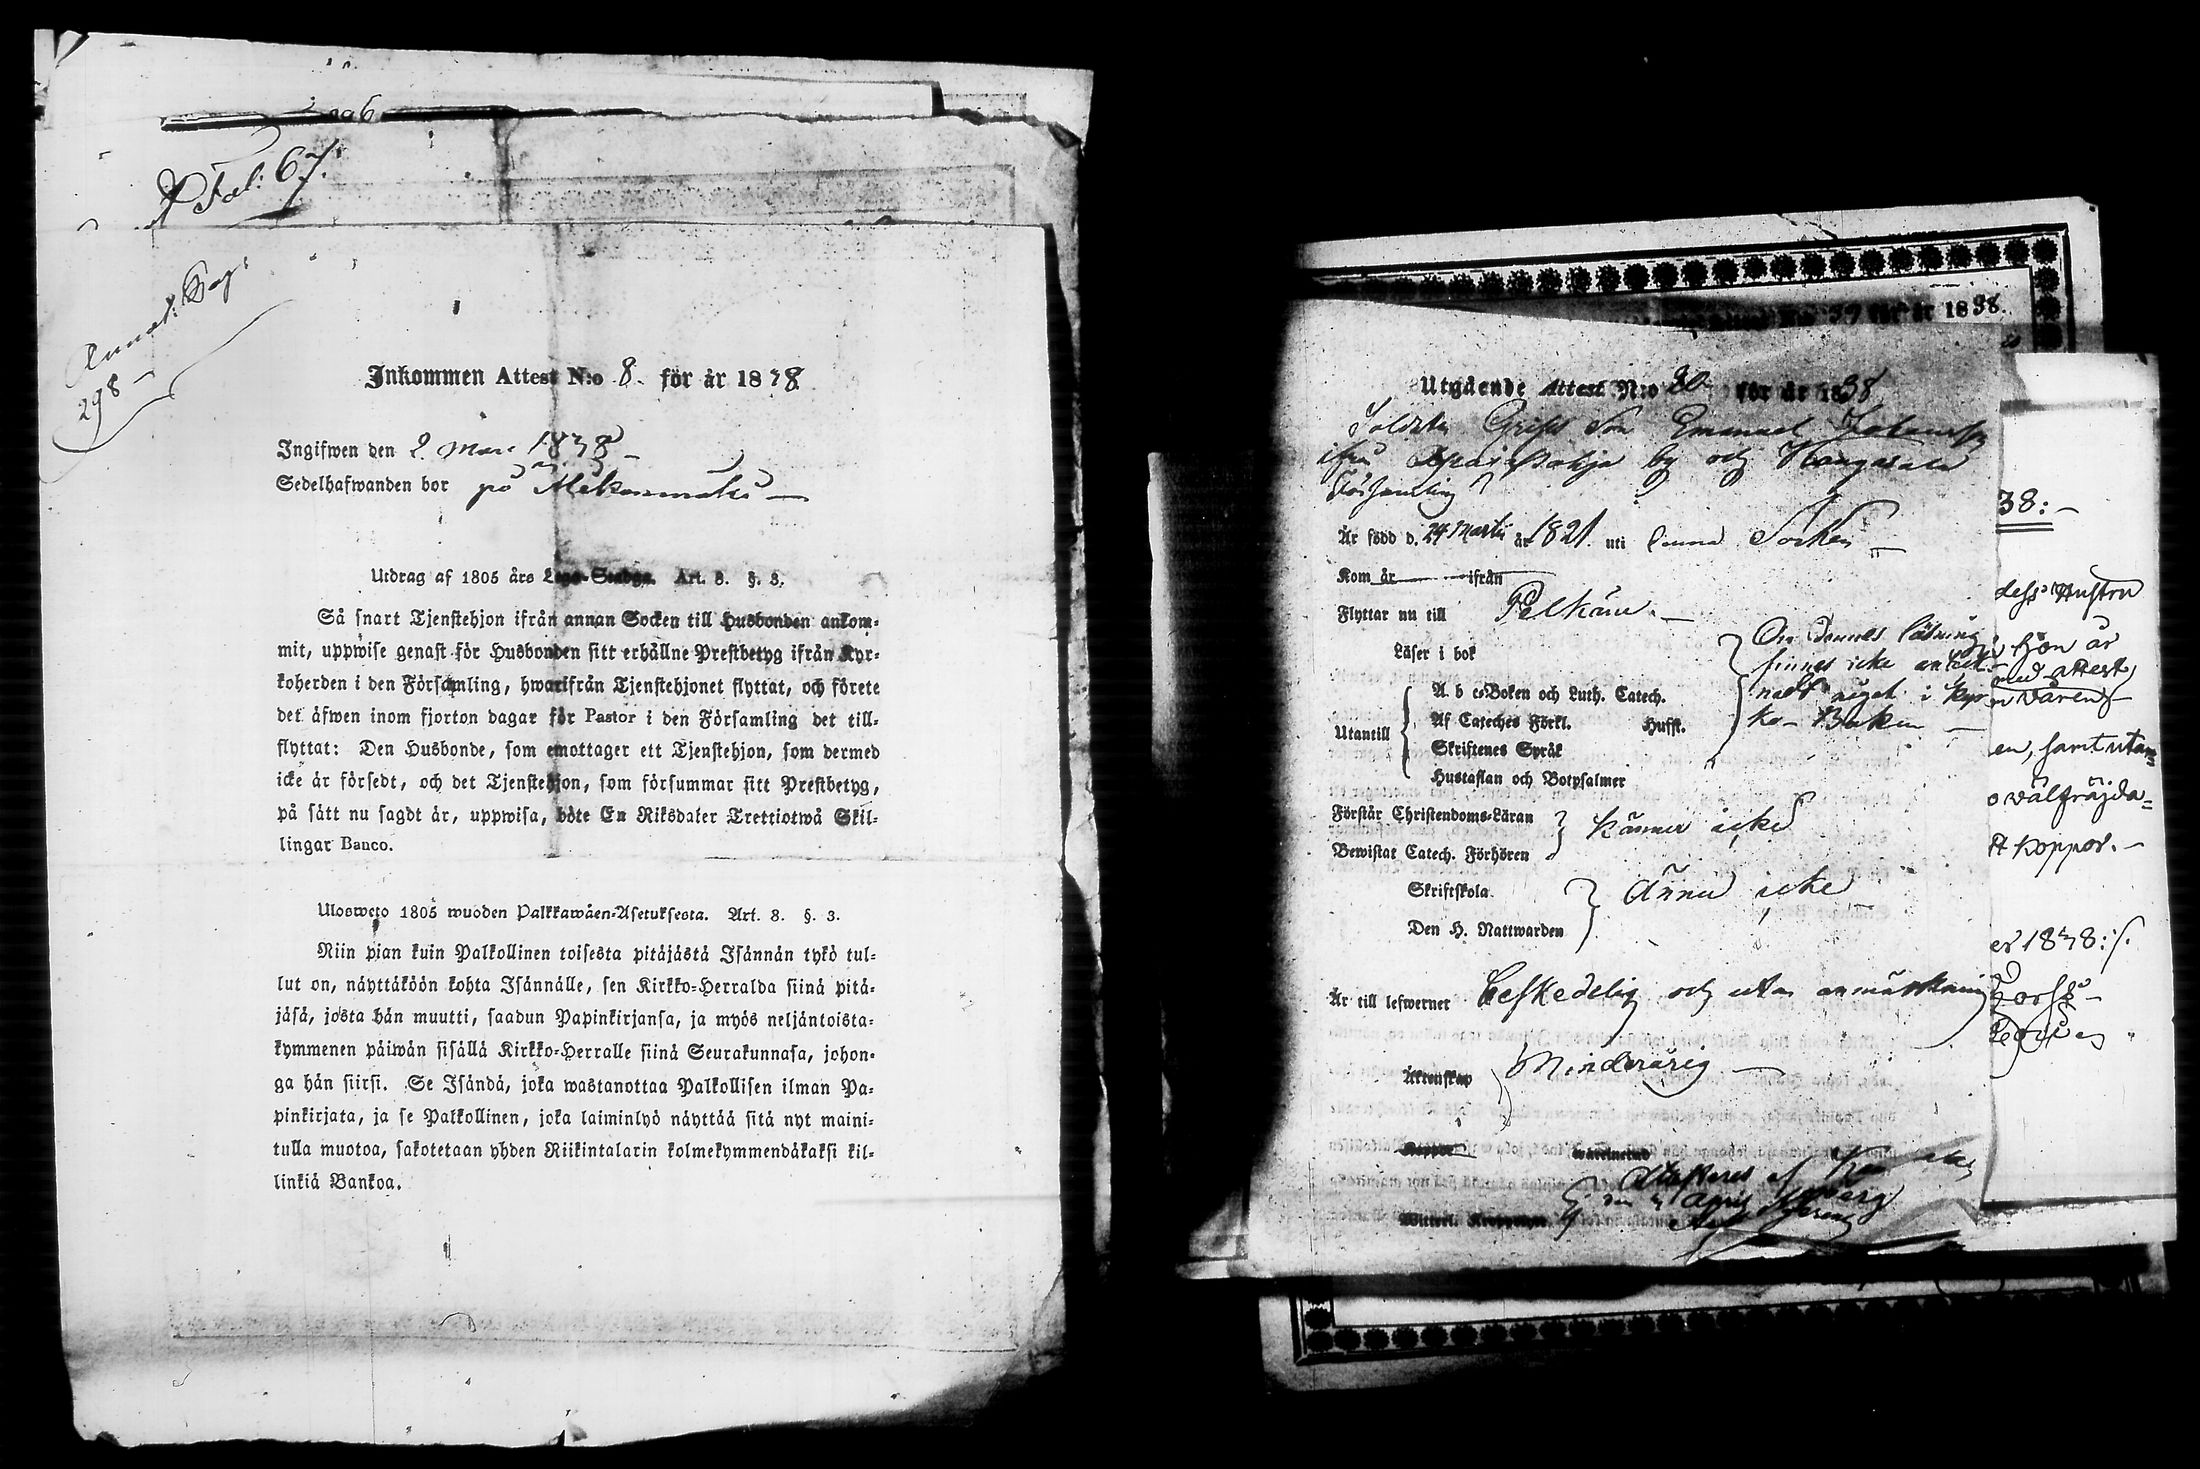 Fol: 67.
Pag:
298 –
Inkommen Attest N:o 8. för år 1838
Ingifwen den 2 Mars 1838 –
Sedelhafwanden bor på
Utdrag af 1805 års Lego-Stadga. Art. 8. §. 3.
Så snart Tjenstehjon ifrån annan Socken till Husbonden ankom-
mit, uppwise genast för Husbonden sitt erhållne Prestbetyg ifrån Kyr-
koherden i den Församling, hwarifrån Tjenstehjonet flyttat, och förete
det äfwen inom fjorton dagar för Pastor i den Församling det till-
flyttat: Den Husbonde, som emottager ett Tjenstehjon, som dermed
icke är försedt, och det Tjenstehjon, som försummar sitt Prestbetyg,
på sätt nu sagdt är, uppwisa, böte En Riksdaler Trettiotwå Skil-
lingar Banco.
Ulosweto 1805 wuoden Palkkawäen-Asetuksesta. Art. 8. §. 3.
Niin pian kuin Palkollinen toisesta pitäjästä Isännän tykö tul-
lut on, näyttäköön kohta Isännälle, sen Kirkko-Herralda siinä pitä-
jäsä, josta hän muutti, saadun Papinkirjansa, ja myös neljäntoista-
kymmenen päiwän sisällä Kirkko-Herralle siinä Seurakunnasa, johon-
ga hän siirsi. Se Isändä, joka wastanottaa Palkollisen ilman Pa-
pinkirjata, ja se Palkollinen, joka laiminlyö näyttää sitä nyt maini-
tulla muotoa, sakotetaan yhden Riikintalarin kolmekymmendäkaksi kil-
linkiä Bankoa.
för år 1838.
Utgående Attest N:o 20 för år 1838
Soldaten Grips Son Emanuel
ifrån by och Kangasala
Församling
Är född d. 24 Martii år 1821. uti denna Socken –
Kom år ifrån
Flyttar nu till Pelkäne. –
Läser i bok
Utantill
A b c-Boken och Luth. Catech.
Af Cateches Förkl. Husst.
Skriftenes Språk
Hustaflan och Botpsalmer
Om dennes läsning
finnes icke anteck-
nadt något i Kyr-
ko-Boken –
Förstår Christendoms-Läran
Bewistat Catech. Förhören
känner icke
Skriftskola
Den H. Nattwarden
Ännu icke
Är till lefwernet beskedelig och utan anmärkning
Äktenskap Minderårig –
Koppor
Attesteras af
den April
38: –
dess Hustru
hon är
med attest
en, samt utan-
o välfräjda-
ft koppor. –
er 1838:/.